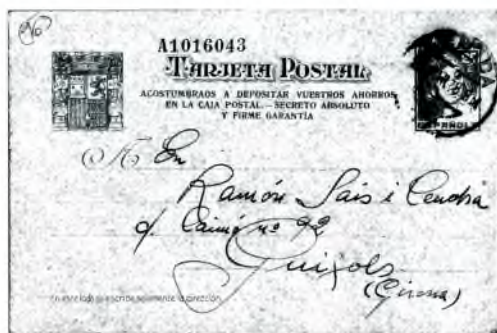 No
A1016043
TARJETA POSTAL
ACOSTUMBRAOS A DEPOSITAR VUESTROS AHORROS
EN LA CAJA POSTAL.-SECRETO ABSOLUTO
Y FIRME GARANTÍA
ESPAÑOLA
En
Ramón Sais i
nº 92
Guixols
(Girona)
En este lado se escribe solamente la dirección